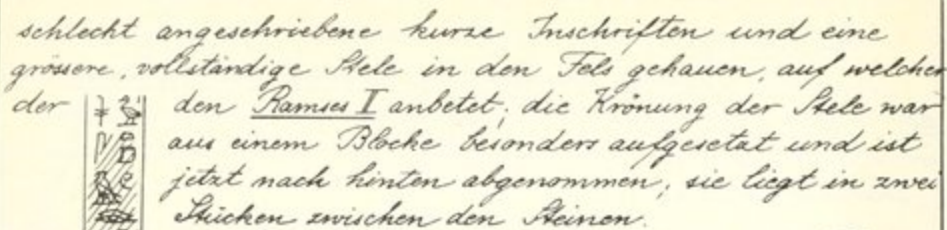 schlecht angeschriebene kurze Inschriften und eine
grössere, vollständige Stele in den Fels gehauen, auf welcher
der den Ramses I anbetet; die Krönung der Stele war
aus einem Blocke besonders aufgesetzt und ist
jetzt nach hinten abgenommen; sie liegt in zwei
Stücken zwischen den Steinen.